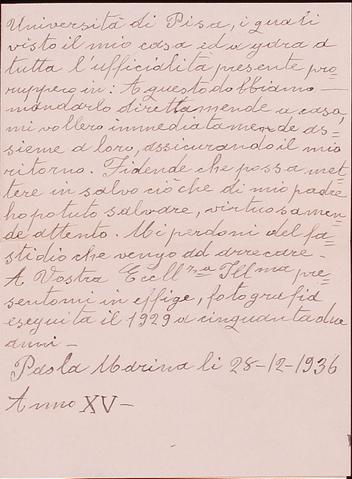 Università di Pisa, i quali
visto il mio casa ed a gara a
tutta l'ufficialità presente pro=
ruppero in: A questo dobbiamo
mandarlo direttamende a casa,
mi vollero immediatamende as=
sieme a loro, assicurando il mio
ritorno. Fidende che possa met=
tere in salvo ciò che di mio padre
ho potuto salvare, virtuosamen=
de attento. Mi perdoni del fa=
stidio che vengo ad arrecare.
A Vostra Eccll.za Ill.ma pre=
sentomi in effige, fotografia
eseguita il 1929 a cinquantadue
anni -
Paola Marina li 28-12-1936
Anno XV -